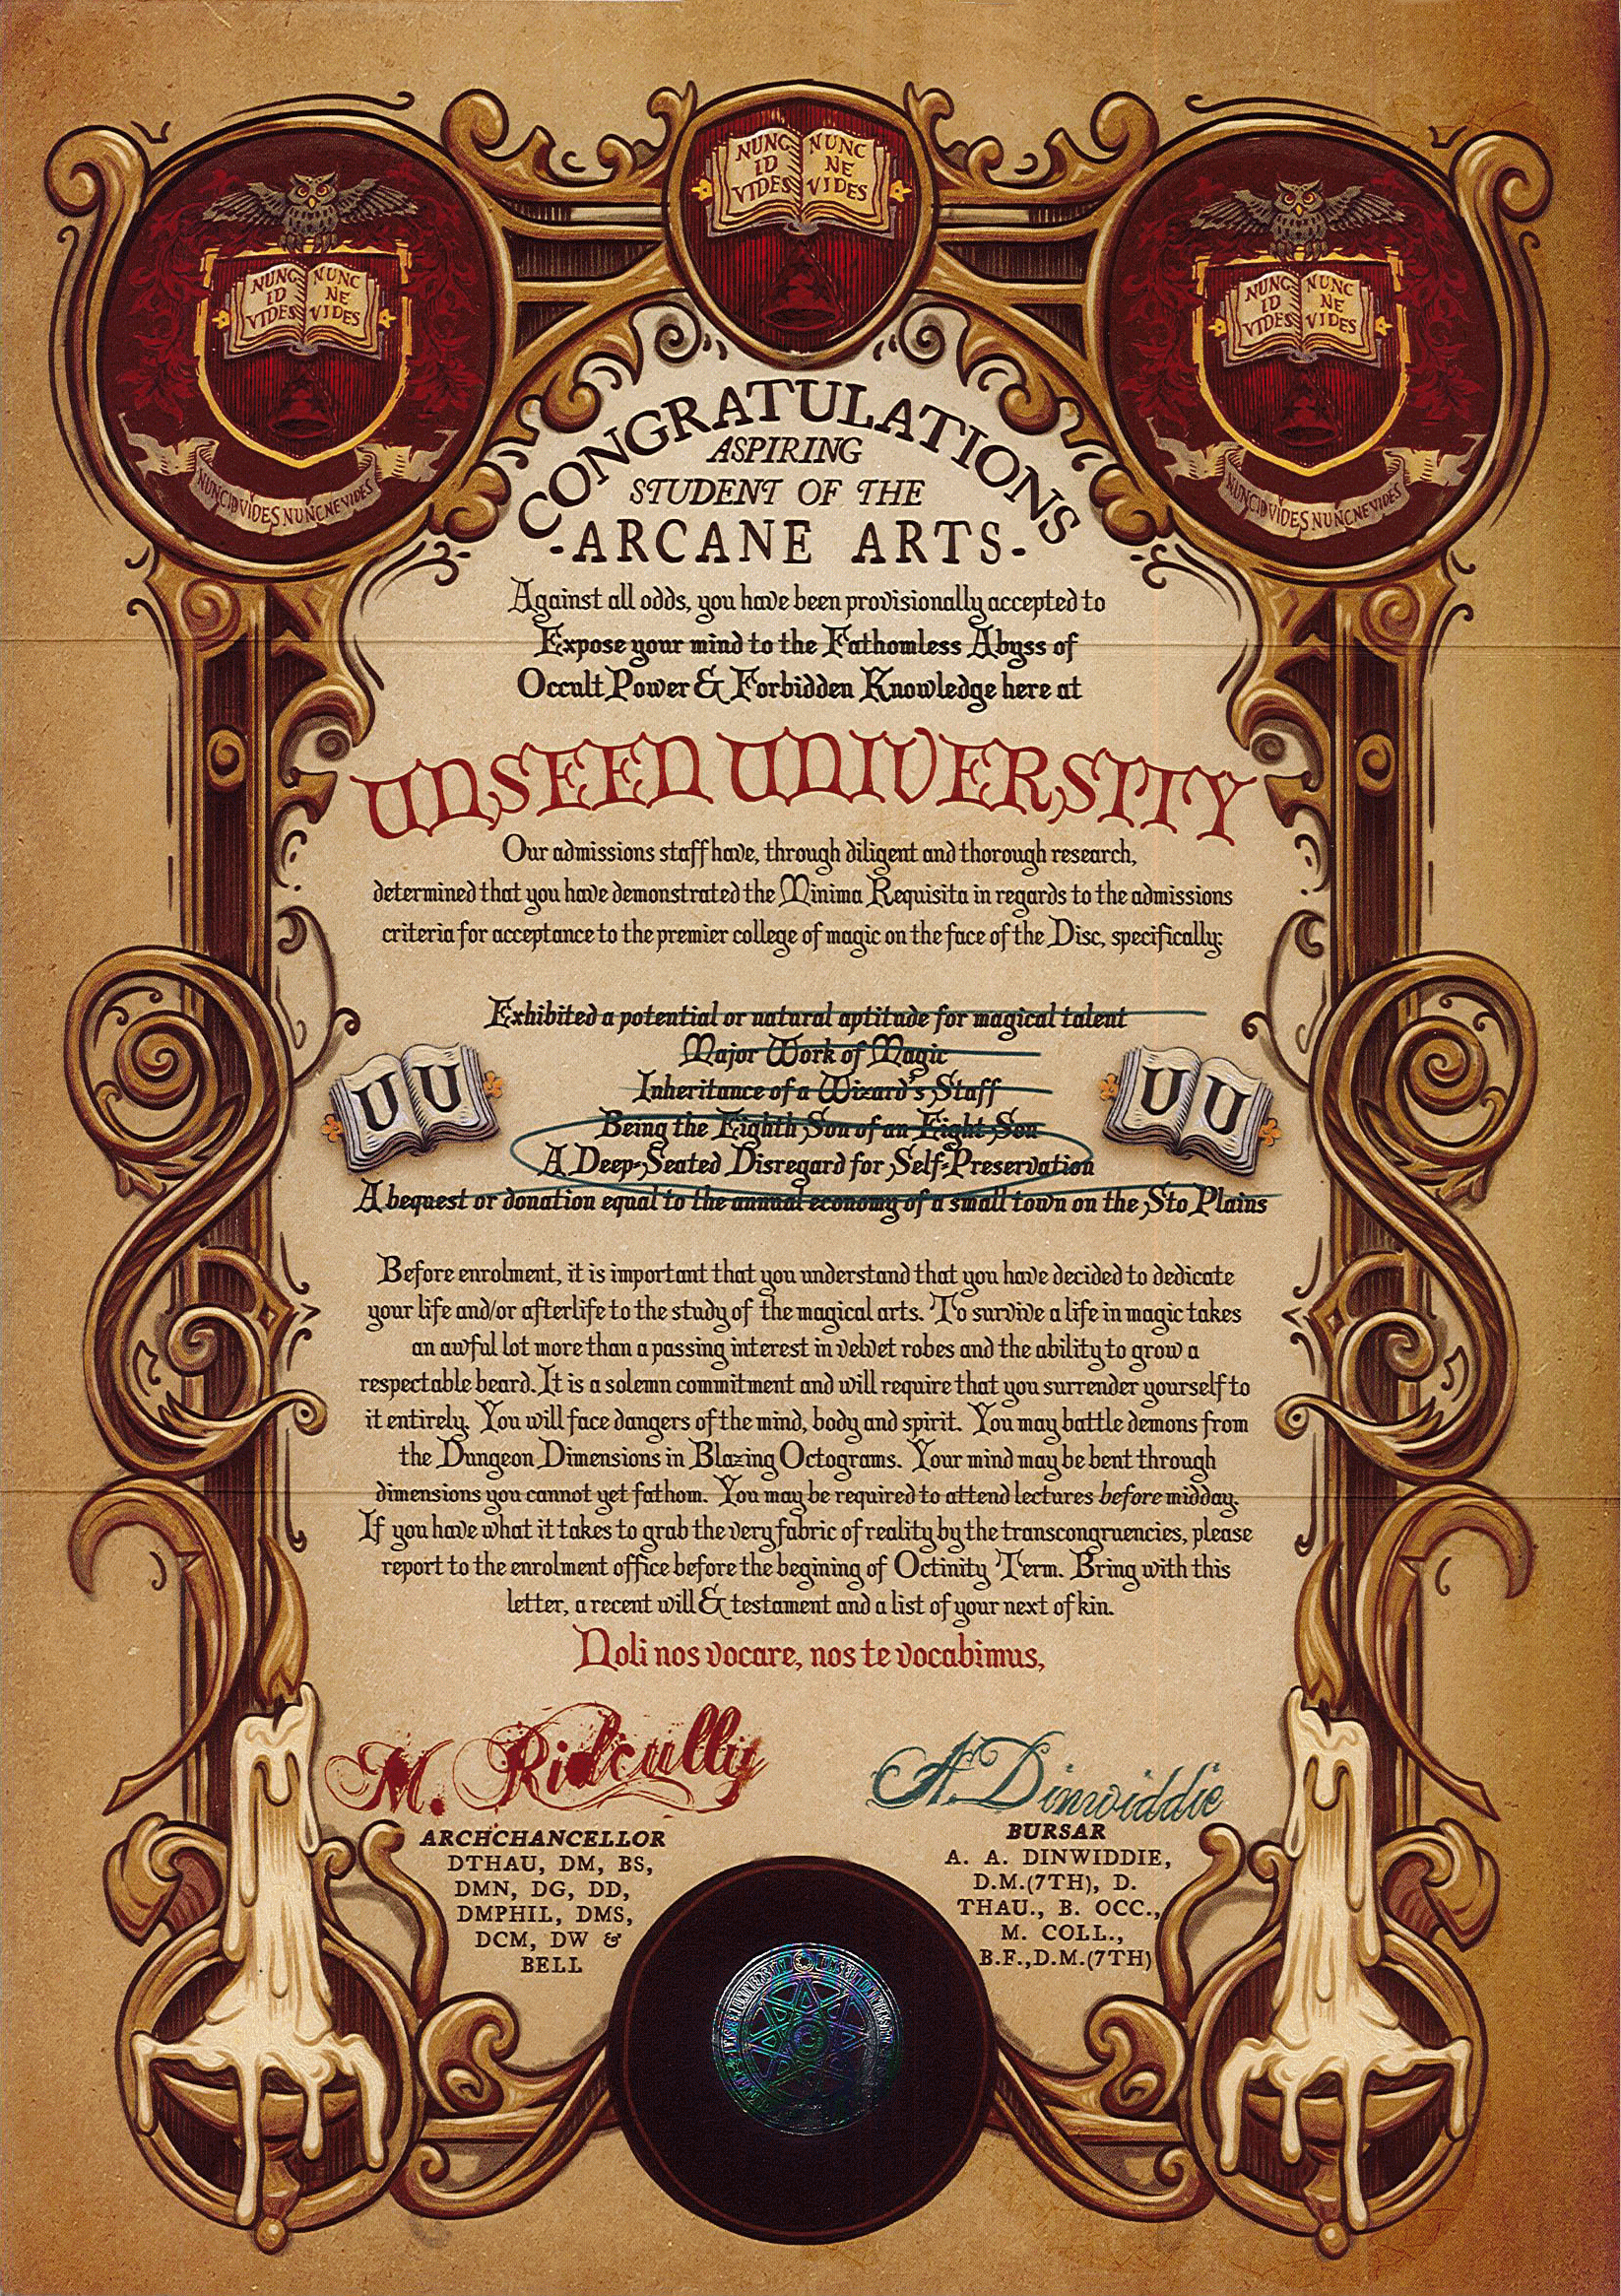 NUNC ID VIDES NUNC NE VIDES
NUNC ID VIDES NUNC NE VIDES
NUNC ID VIDES NUNC NE VIDES
NUNCIDVIDES NUNCNEVIDES
NUNCIDVIDES NUNCNEVIDES
CONGRATULATIONS
ASPIRING
STUDENT OF THE
-ARCANE ARTS-
Against all odds, you have been provisionally accepted to
Expose your mind to the Fathomless Abyss of
Occult Power & Forbidden Knowledge here at
UNSEEN UNIVERSITY
Our admissions staff have, through diligent and thorough research,
determined that you have demonstrated the Minima Requisita in regards to the admissions
criteria for acceptance to the premier college of magic on the face of the Disc, specifically:
Exhibited a potential or natural aptitude for magical talent
Major Work of Magic
Inheritance of a Wizard's Staff
Being the Eighth Son of an Eight Son
A Deep-Seated Disregard for Self-Preservation
A bequest or donation equal to the annual economy of a small town on the Sto Plains
UU
UU
Before enrolment, it is important that you understand that you have decided to dedicate
your life and/or afterlife to the study of the magical arts. To survive a life in magic takes
an awful lot more than a passing interest in velvet robes and the ability to grow a
respectable beard. It is a solemn commitment and will require that you surrender yourself to
it entirely. You will face dangers of the mind, body and spirit. You may battle demons from
the Dungeon Dimensions in Blazing Octograms. Your mind may be bent through
dimensions you cannot yet fathom. You may be required to attend lectures before midday.
If you have what it takes to grab the very fabric of reality by the transcongruencies, please
report to the enrolment office before the begining of Octinity Term. Bring with this
letter, a recent will & testament and a list of your next of kin.
Noli nos vocare, nos te vocabimus,
M. Ridcully
ARCHCHANCELLOR
DTHAU, DM, BS,
DMN, DG, DD,
DMPHIL, DMS,
DCM, DW &
BELL
A. Dinwiddie
BURSAR
A. A. DINWIDDIE,
D.M.(7TH), D.
THAU., B. OCC.,
M. COLL.,
B.F.,D.M.(7TH)